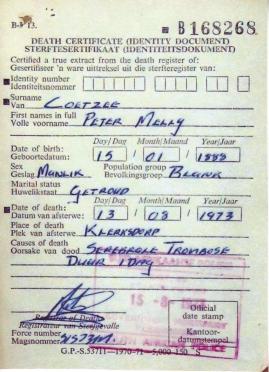 B-I 13.
B 168268
DEATH CERTIFICATE (IDENTITY DOCUMENT)
STERFTESERTIFIKAAT (IDENTITEITSDOKUMENT)
Certified a true extract from the death register of:
Gesertifiseer 'n ware uittreksel uit die sterfteregister van:
Identity number
Identiteitsnommer
Surname
Van COETZEE
First names in full
Volle voorname PETER
Day/Dag Month/Maand Year/Jaar
Date of birth:
Geboortedatum: 15 / 01 / 1888
Sex Population group
Geslag MANLIK Bevolkingsgroep BLANK
Marital status
Huwelikstaat GETROUD
Day/Dag Month/Maand Year/Jaar
Date of death:
Datum van afsterwe: 13 / 08 / 1973
Place of death
Plek van afsterwe KLERKSDORP
Causes of death
Oorsake van dood SEREBRALE TROMBOSE
DUUR 1 DAG
15 -8
Official
date stamp
Registrar of Deaths
Registrateur van Sterfgevalle
Kantoor-
datumstempel
Force number
Magsnommer
POLICE
G.P.-S.